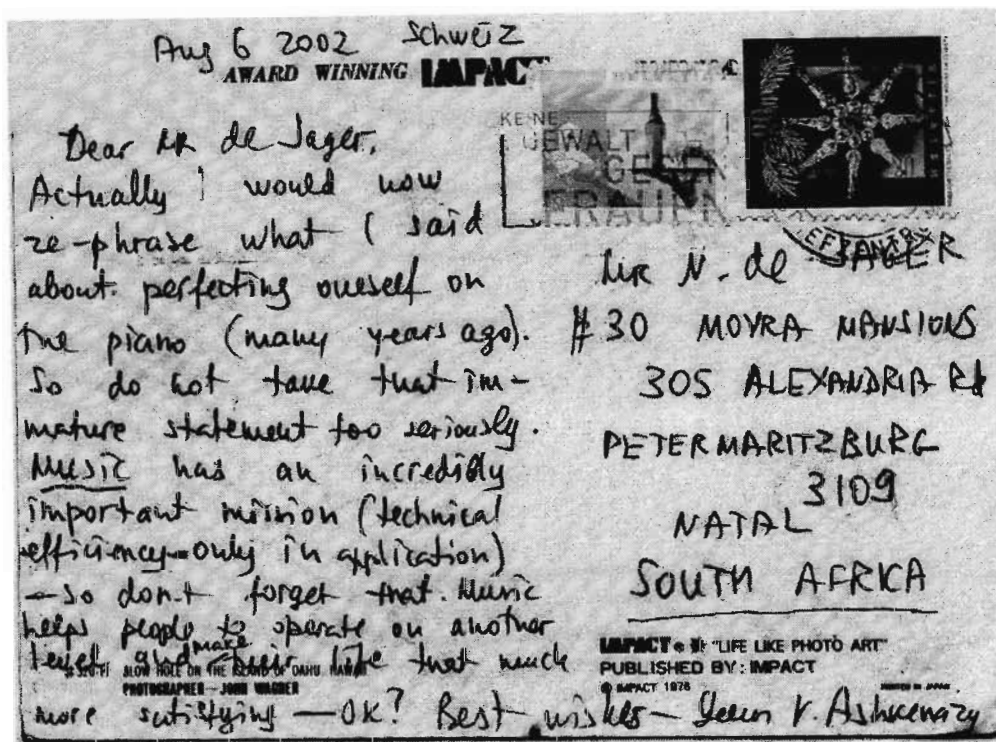 Aug 6 2002 Schweiz
AWARD WINNING IMPACT
KEINE
GEWALT
GEGEN
FRAUEN
Dear Mr de Jager,
Actually I would now
re-phrase what I said
about perfecting oneself on
the piano (many years ago).
So do not take that im-
mature statement too seriously.
Music has an incredibly
important mission (technical
efficiency - only in application)
- so don't forget that. Music
helps people to operate on another
level and make their life that much
more satisfying - OK? Best wishes - Yours V. Ashkenazy
BLOW HOLE ON THE ISLAND OF OAHU HAWAII
PHOTOGRAPHER - JOHN WAGNER
Mr N. de JAGER
#30 MOYRA MANSIONS
305 ALEXANDRIA Rd
PETERMARITZBURG
3109
NATAL
SOUTH AFRICA
IMPACT "LIFE LIKE PHOTO ART"
PUBLISHED BY: IMPACT
© IMPACT 1978
PRINTED IN JAPAN